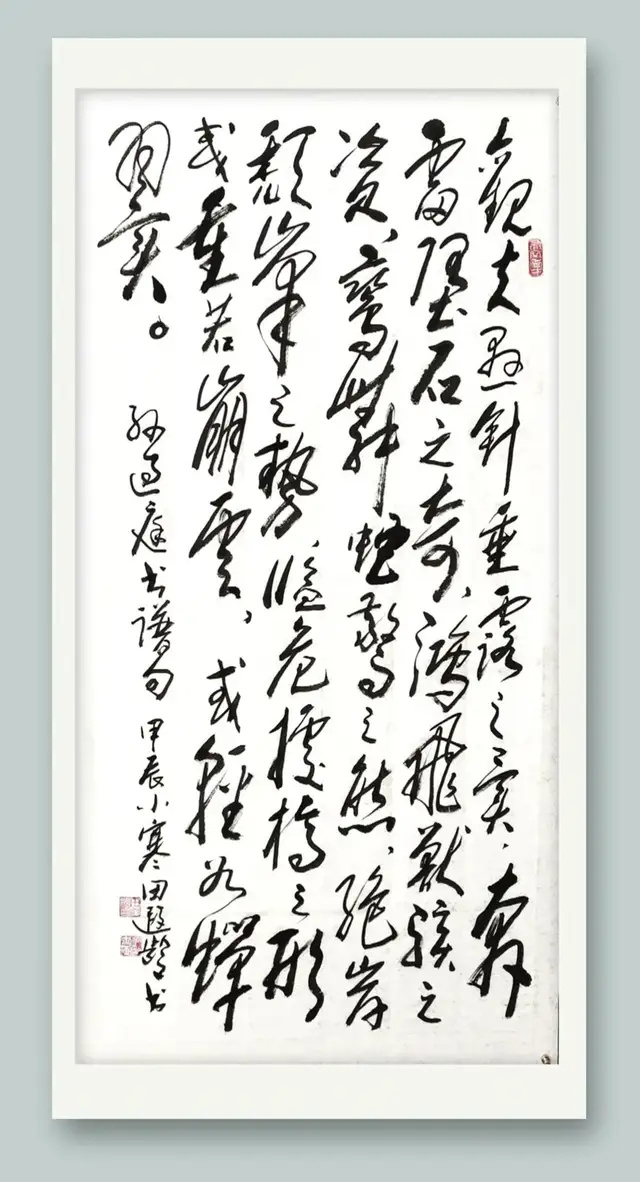 觀夫懸針垂露之異、奔
雷墜石之奇、鴻飛獸駭之
資、鸞舞虵驚之態、絕岸
頹峯之勢、臨危據槁之形
或重若崩雲、或輕如蟬
翼。
孙过庭书谱句 甲辰小寒 田遐齡书